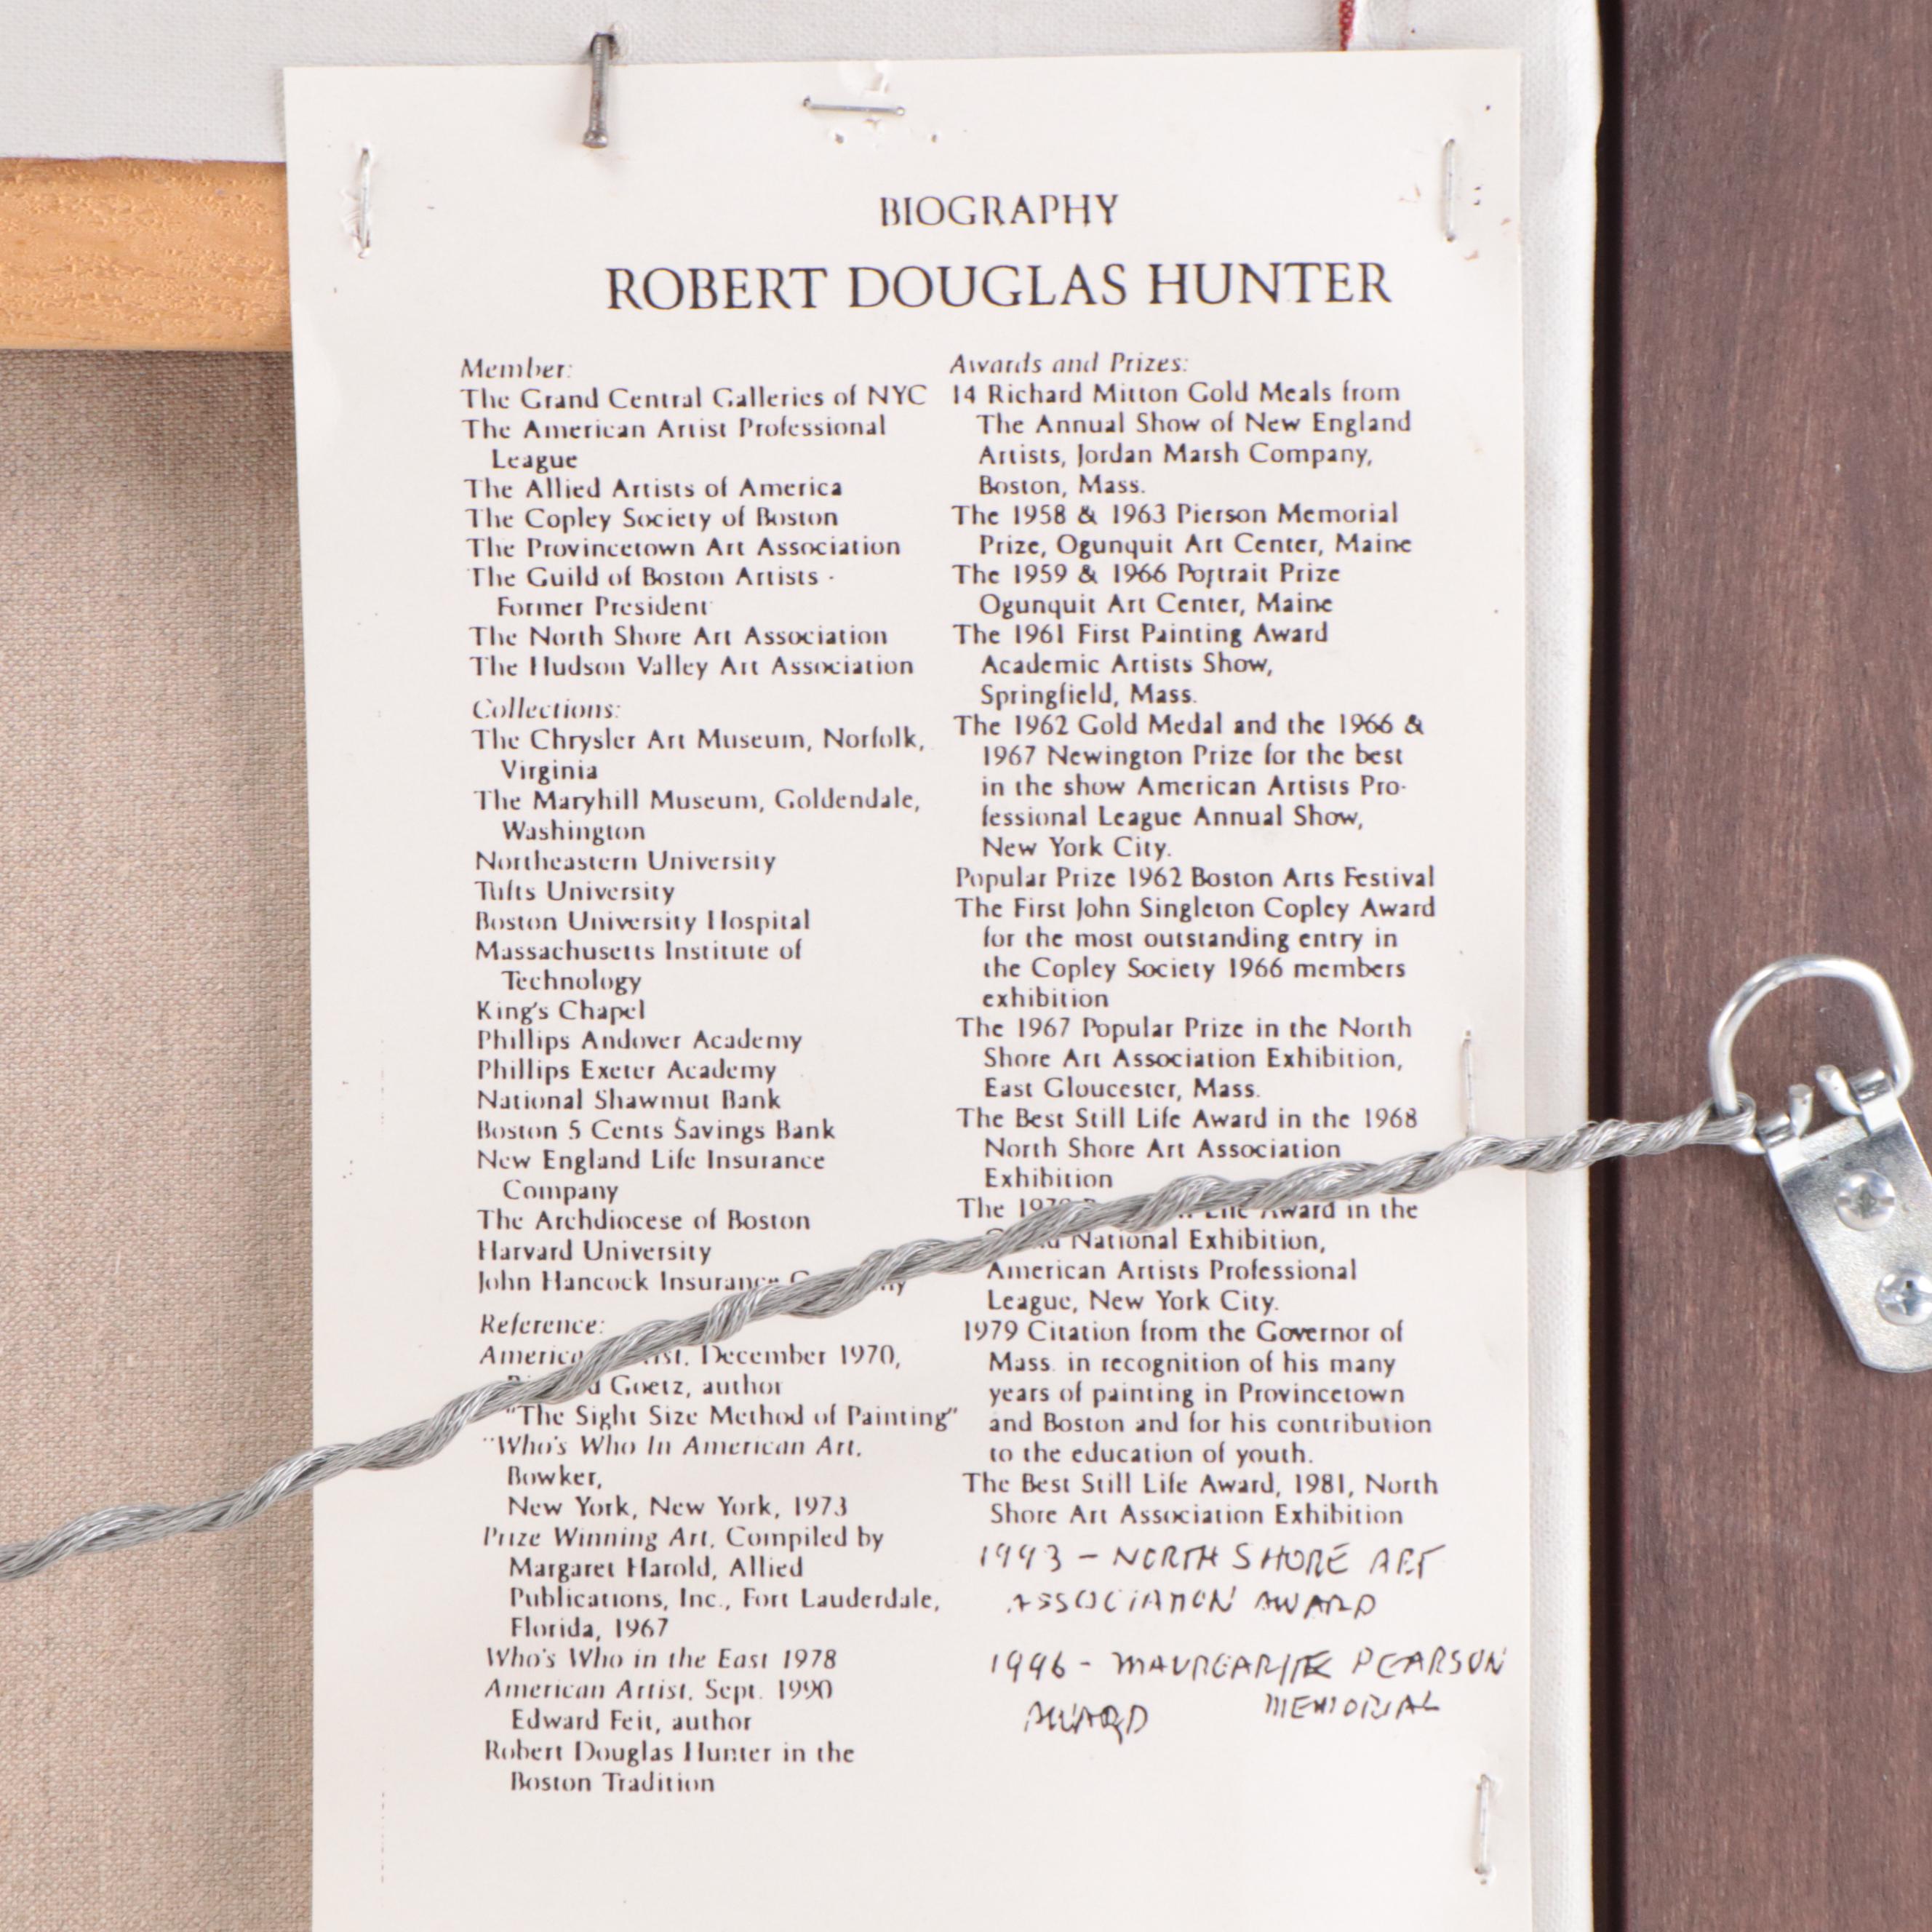 BIOGRAPHY
ROBERT DOUGLAS HUNTER
Member:
The Grand Central Galleries of NYC
The American Artist Professional
League
The Allied Artists of America
The Copley Society of Boston
The Provincetown Art Association
The Guild of Boston Artists -
Former President
The North Shore Art Association
The Hudson Valley Art Association
Collections:
The Chrysler Art Museum, Norfolk,
Virginia
The Maryhill Museum, Goldendale,
Washington
Northeastern University
Tufts University
Boston University Hospital
Massachusetts Institute of
Technology
King's Chapel
Phillips Andover Academy
Phillips Exeter Academy
National Shawmut Bank
Boston 5 Cents Savings Bank
New England Life Insurance
Company
The Archdiocese of Boston
Harvard University
John Hancock Insurance
Reference:
December 1970,
Goetz, author
"The Sight Size Method of Painting"
"Who's Who In American Art,
Bowker,
New York, New York, 1973
Prize Winning Art, Compiled by
Margaret Harold, Allied
Publications, Inc., Fort Lauderdale,
Florida, 1967
Who's Who in the East 1978
American Artist, Sept. 1990
Edward Feit, author
Robert Douglas Hunter in the
Boston Tradition
Awards and Prizes:
14 Richard Mitton Gold Meals from
The Annual Show of New England
Artists, Jordan Marsh Company,
Boston, Mass.
The 1958 & 1963 Pierson Memorial
Prize, Ogunquit Art Center, Maine
The 1959 & 1966 Portrait Prize
Ogunquit Art Center, Maine
The 1961 First Painting Award
Academic Artists Show,
Springfield, Mass.
The 1962 Gold Medal and the 1966 &
1967 Newington Prize for the best
in the show American Artists Pro-
fessional League Annual Show,
New York City.
Popular Prize 1962 Boston Arts Festival
The First John Singleton Copley Award
for the most outstanding entry in
the Copley Society 1966 members
exhibition
The 1967 Popular Prize in the North
Shore Art Association Exhibition,
East Gloucester, Mass.
The Best Still Life Award in the 1968
North Shore Art Association
Exhibition
The Award in the
National Exhibition,
American Artists Professional
League, New York City.
1979 Citation from the Governor of
Mass. in recognition of his many
years of painting in Provincetown
and Boston and for his contribution
to the education of youth.
The Best Still Life Award, 1981, North
Shore Art Association Exhibition
1993 - NORTH SHORE ART
ASSOCIATION AWARD
1996 - MAURGARITE PEARSON
AWARD MEMORIAL